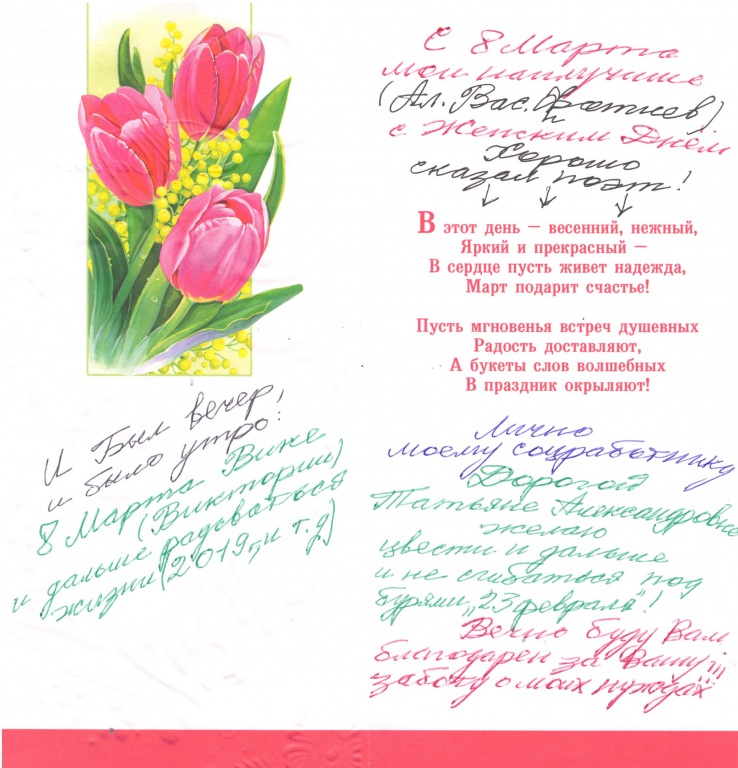 С 8 Марта
мои наилучшие
(Ал. Вас. Фатнев)
с Женским Днём
Хорошо
сказал поэт!
В этот день — весенний, нежный,
Яркий и прекрасный —
В сердце пусть живет надежда,
Март подарит счастье!
Пусть мгновенья встреч душевных
Радость доставляют,
А букеты слов волшебных
В праздник окрыляют!
Лично
моему соцработнику
Дорогой
Татьяне Александровне
желаю
цвести и дальше
и не сгибаться под
бурями „23 февраля"!
Вечно буду Вам
благодарен за Вашу
заботу о моих нуждах!!!
И Был вечер,
и было утро:
8 Марта Вике
(Виктории)
и дальше радоваться
жизни (2019г, и т.д)